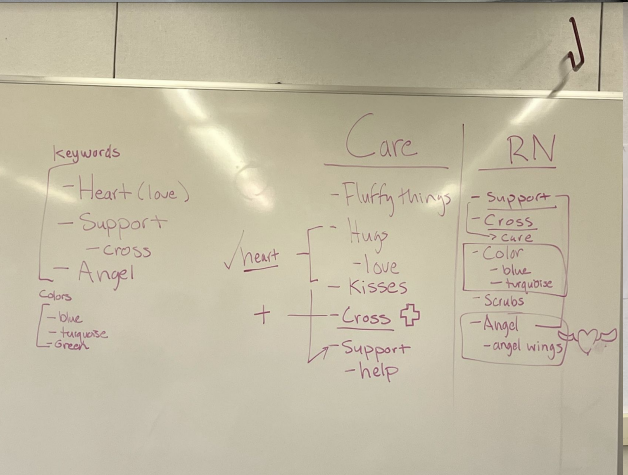 Keywords
- Heart (love)
- Support
- cross
- Angel
Colors
- blue
- turquoise
- Green
Care
- Fluffy things
- Hugs
- love
- Kisses
- Cross
- Support
- help
heart
+
RN
- Support
- Cross
care
- Color
- blue
- turquoise
- Scrubs
- Angel
- angel wings